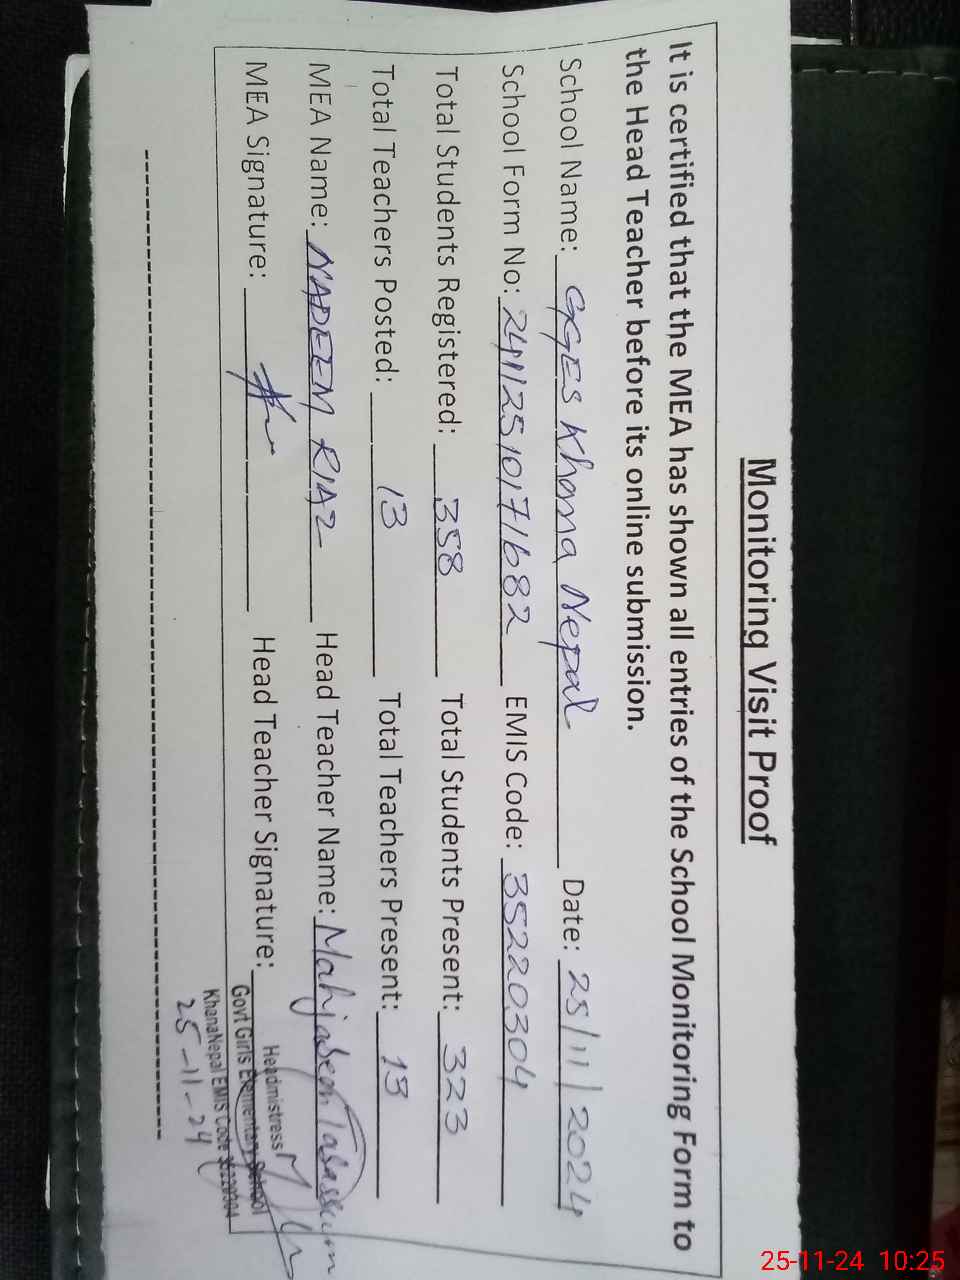 Monitoring Visit Proof
It is certified that the MEA has shown all entries of the School Monitoring Form to
the Head Teacher before its online submission.
School Name: GGES Khana Nepal Date: 25/11/2024
School Form No: 241125101711682 EMIS Code: 35220304
Total Students Registered: 358 Total Students Present: 323
Total Teachers Posted: 13 Total Teachers Present: 13
MEA Name: NADEEM RIAZ Head Teacher Name: Mahjabeen Tabassum
MEA Signature: Head Teacher Signature:
Headmistress
Govt Girls Elementary School
KhanaNepal EMIS Code 35220304
25-11-24
25-11-24 10:25